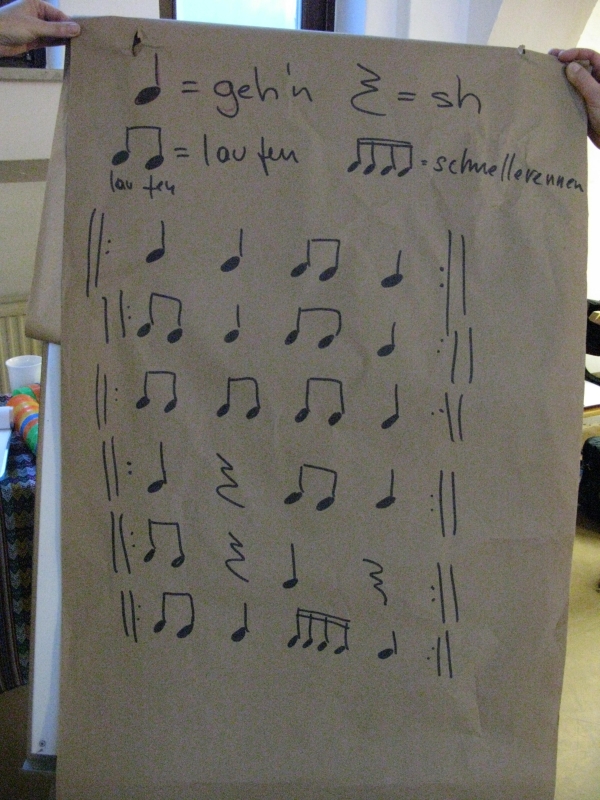 = geh'n = sh
= laufen = schnellerennen
laufen